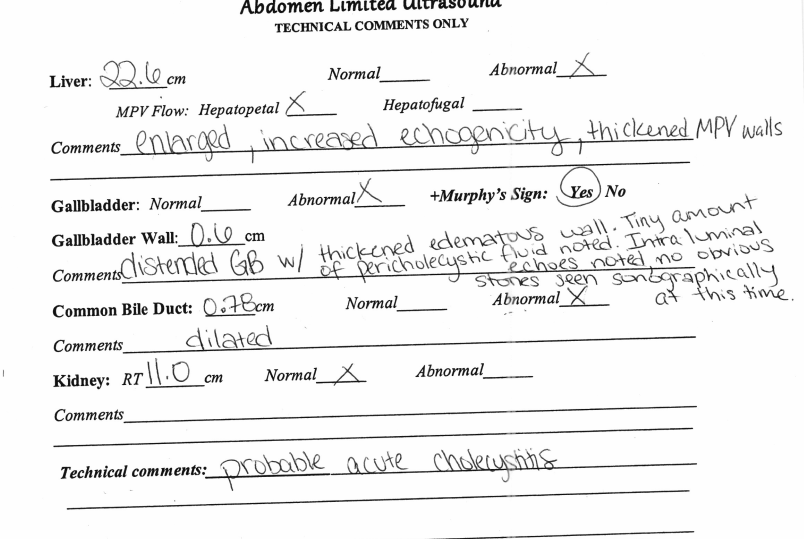 Abdomen Limited Ultrasound
TECHNICAL COMMENTS ONLY
Liver: 22.6 cm Normal____ Abnormal X
MPV Flow: Hepatopetal X Hepatofugal ____
Comments enlarged, increased echogenicity, thickened MPV walls
Gallbladder: Normal____ Abnormal X +Murphy's Sign: Yes No
Gallbladder Wall: 0.6 cm
Comments distended GB w/ thickened edematous wall. Tiny amount
of pericholecystic fluid noted. Intraluminal
echoes noted, no obvious
stones seen sonographically
at this time.
Common Bile Duct: 0.78 cm Normal____ Abnormal X
Comments dilated
Kidney: RT 11.0 cm Normal X Abnormal____
Comments
Technical comments: probable acute cholecystitis